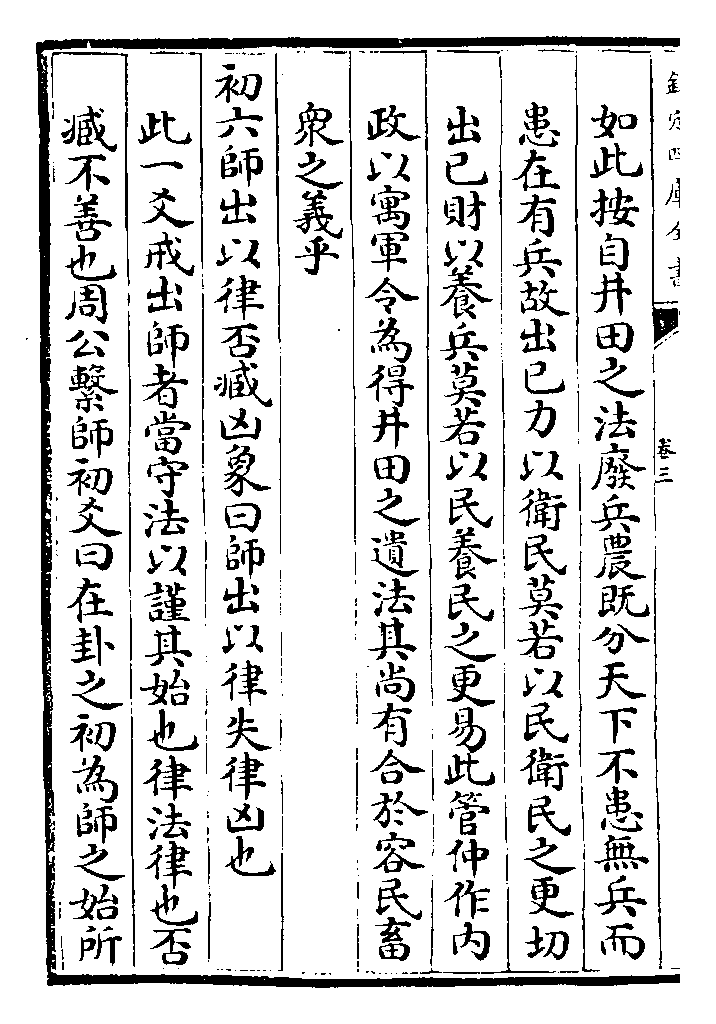 欽定四庫全書
卷三
如此按自井田之法廢兵農既分天下不患無兵而
患在有兵故出己力以衛民莫若以民衛民之更切
出己財以養兵莫若以民養民之更易此管仲作内
政以寓軍令為得井田之遺法其尚有合於容民畜
衆之義乎
初六師出以律否臧凶象曰師出以律失律凶也
此一爻戒出師者當守法以謹其始也律法律也否
臧不善也周公繫師初爻曰在卦之初為師之始所